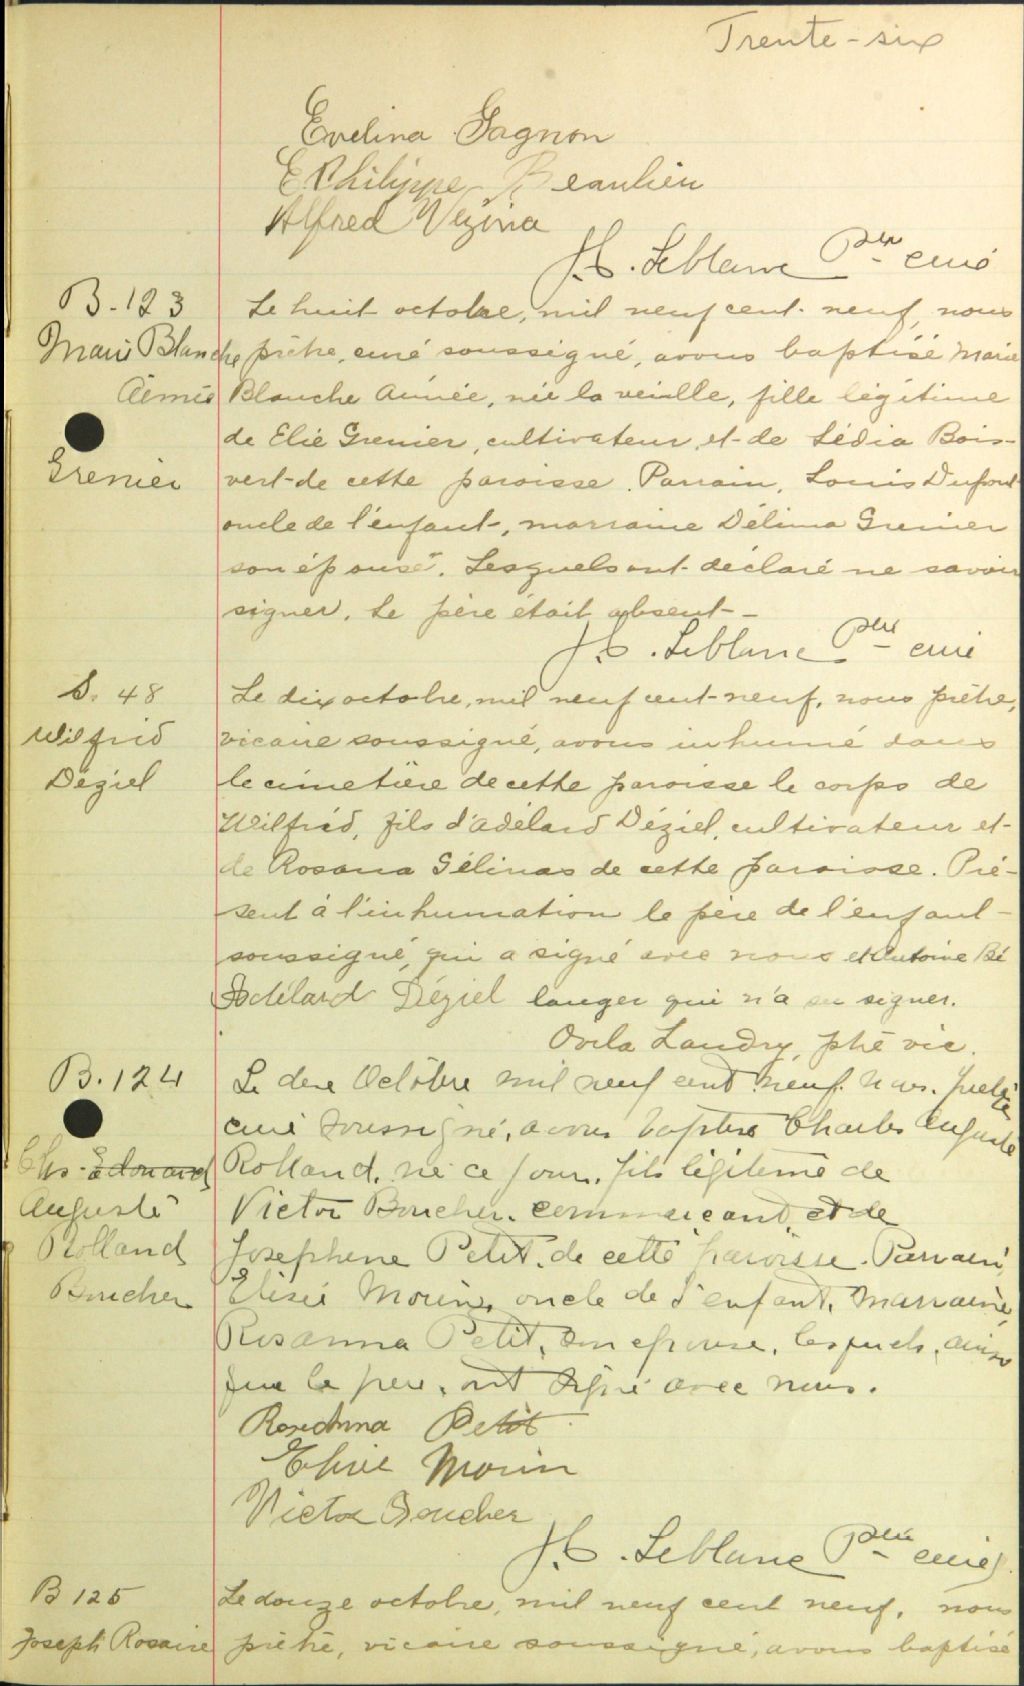 Trente-six
Evelina Gagnon
E Philippe Beaulieu
Alfred Vezina
J.C. Leblanc Ptre curé
B-123
Marie Blanche
Aimée
Grenier
Le huit octobre, mil neuf cent-neuf, nous
prêtre, curé soussigné, avons baptisé Marie
Blanche Aimée, née la veille, fille légitime
de Elie Grenier, cultivateur, et de Lédia Bois-
vert de cette paroisse. Parrain, Louis Dufont
oncle de l'enfant, marraine Délima Grenier
son épouse. Lesquels ont déclaré ne savoir
signer. Le père était absent-
J.C. Leblanc Ptre curé
S. 48
Wilfrid
Déziel
Le dix octobre, mil neuf cent-neuf, nous prêtre,
vicaire soussigné, avons inhumé dans
le cimetière de cette paroisse le corps de
Wilfrid, fils d'Adélard Déziel, cultivateur et
de Rosana Gélinas de cette paroisse. Pré-
sent à l'inhumation le père de l'enfant
soussigné, qui a signé avec nous et Antoine Bé
Adélard Déziel langer qui n'a su signer.
Ovila Landry, ptre vic.
B. 124
Chs-Edouard
Auguste
Rolland
Boucher
Le Octobre mil neuf cent neuf. Nous. prêtre
curé soussigné, avons baptisé Charles Auguste
Rolland, né ce jour, fils légitime de
Victor Boucher, commerçant, et de
Josephine Petit, de cette paroisse. Parrain,
Elisée Morin, oncle de l'enfant, marraine,
Rosanna Petit, son epouse, lesquels, ainsi
que le père, ont signé avec nous.
Roseanna Petit
Elisée Morin
Victor Boucher
J.C. Leblanc Ptre curé
B 125
Joseph Rosaire
Le douze octobre, mil neuf cent neuf, nous
prêtre, vicaire soussigné, avons baptisé